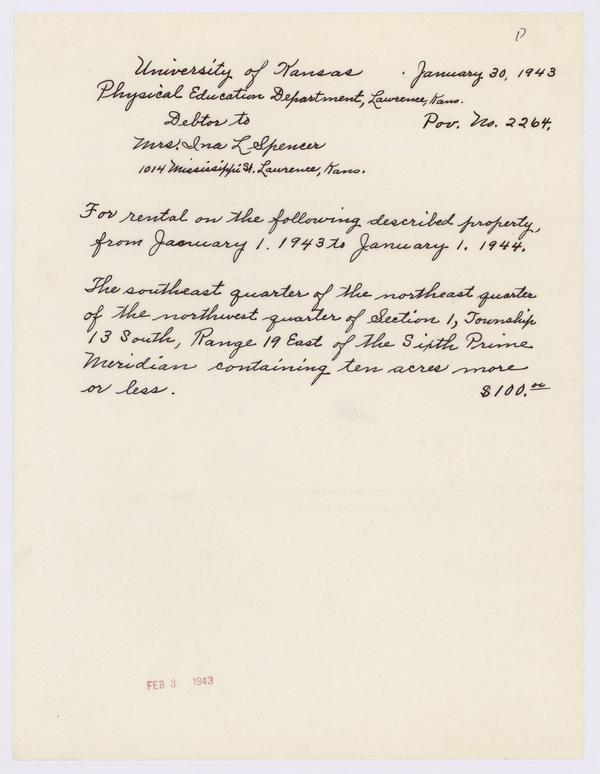 P
University of Kansas . January 30, 1943
Physical Education Department, Lawrence, Kans.
Debtor to Pov. No. 2264.
Mrs. Ina L. Spencer
1014 Mississippi St. Lawrence, Kans.
For rental on the following described property,
from January 1. 1943 to January 1. 1944.
The southeast quarter of the northeast quarter
of the northwest quarter of Section 1, Township
13 South, Range 19 East of the Sixth Prime
Meridian containing ten acres more
or less. $100.00
FEB 3 1943